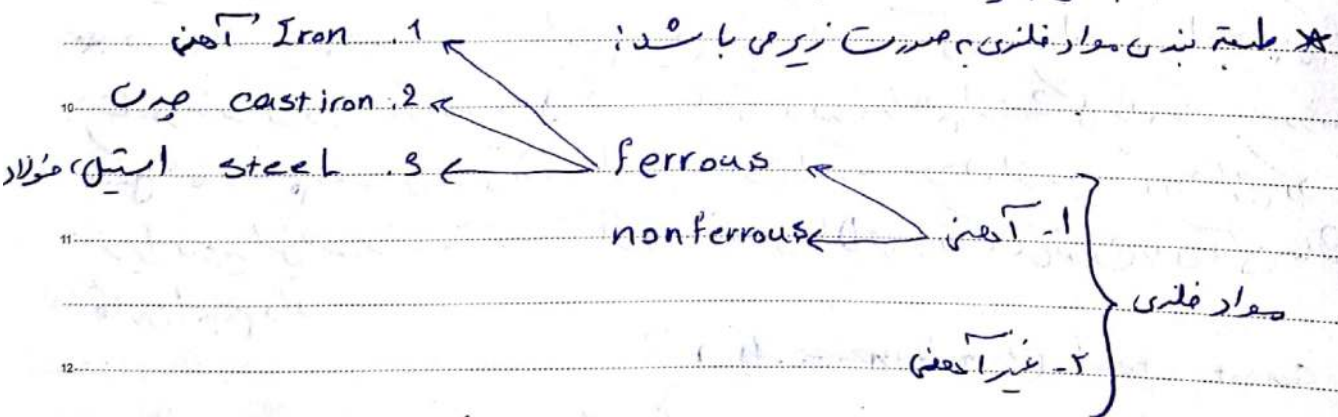 * طبقه بندی مواد فلزی به صورت زیر می باشد:
1. Iron آهن
10 2. cast iron چدن
ferrous 3. steel استیل، فولاد
11 1- آهنی nonferrous
مواد فلزی
12 2- غیرآهنی